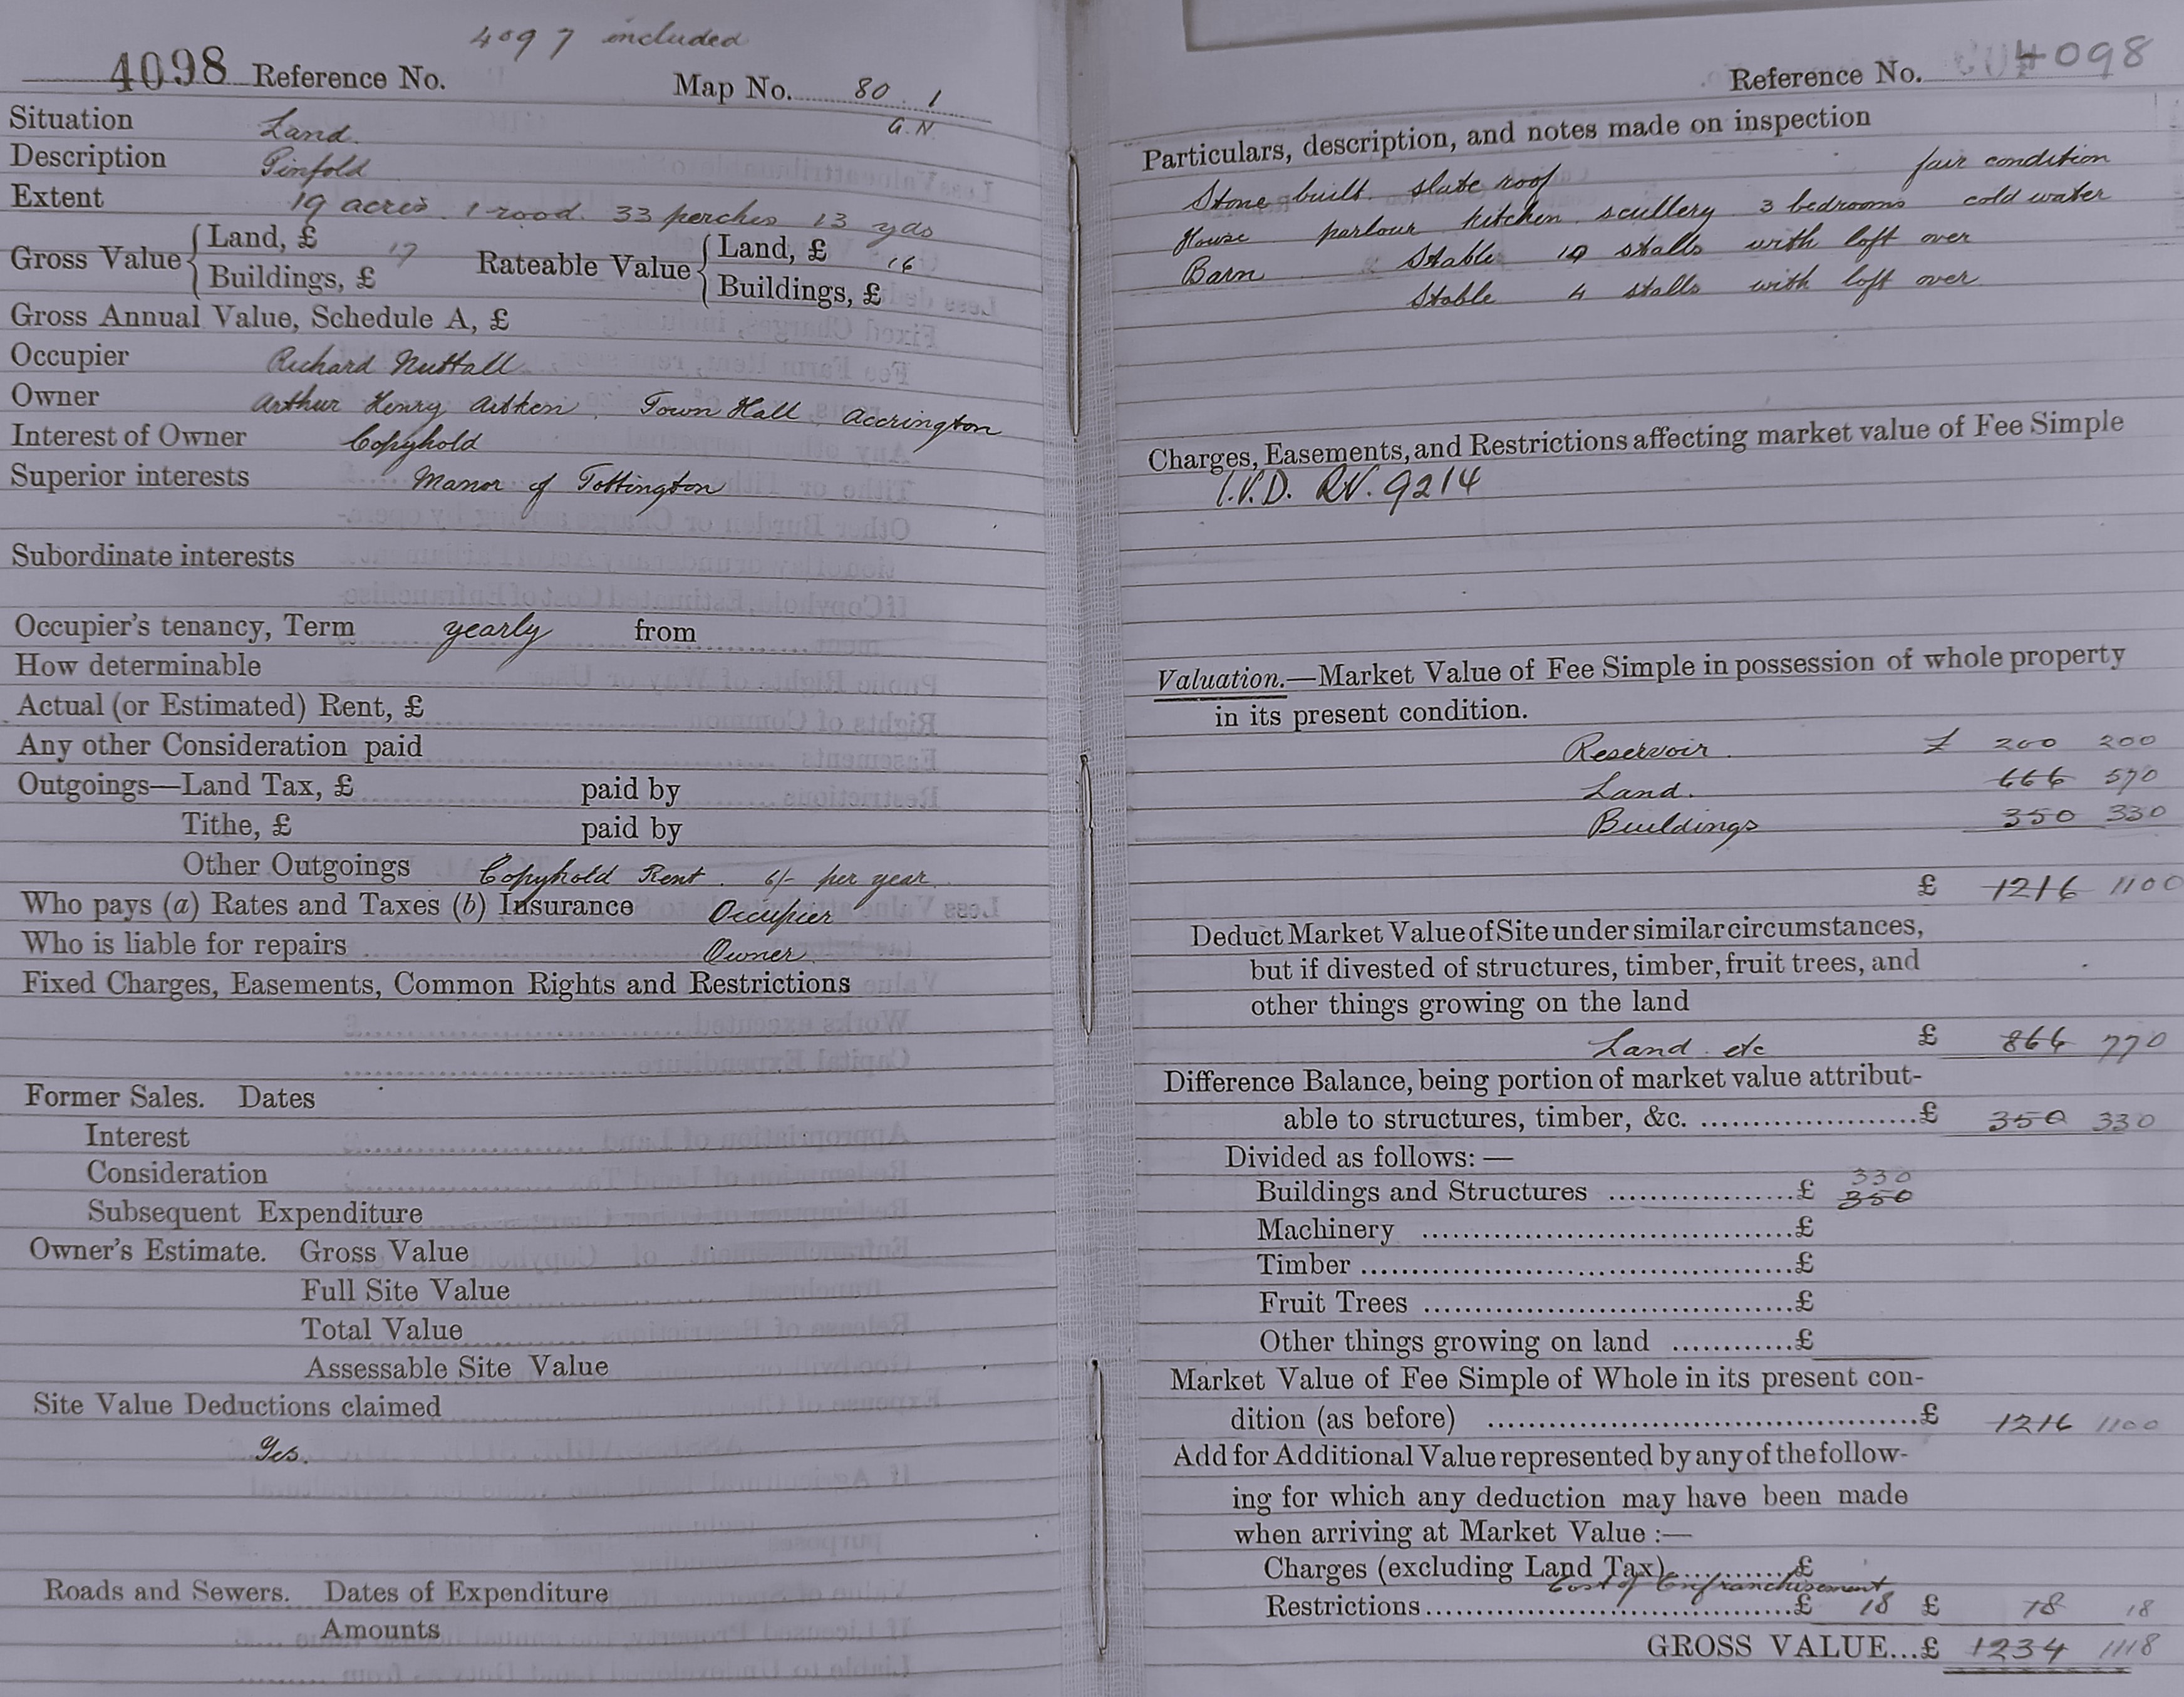 4097 included
4098 Reference No. Map No. 80.1
G.N.
Situation Land.
Description Pinfold
Extent 19 acres. 1 rood. 33 perches 13 yds
Gross Value { Land, £ 17 Rateable Value { Land, £ 16
Buildings, £ Buildings, £
Gross Annual Value, Schedule A, £
Occupier Richard Nuttall
Owner Arthur Henry Aitken. Town Hall Accrington
Interest of Owner Copyhold
Superior interests Manor of Tottington
Subordinate interests
Occupier's tenancy, Term yearly from
How determinable
Actual (or Estimated) Rent, £
Any other Consideration paid
Outgoings—Land Tax, £ paid by
Tithe, £ paid by
Other Outgoings Copyhold Rent. 6/- per year
Who pays (a) Rates and Taxes (b) Insurance Occupier
Who is liable for repairs Owner
Fixed Charges, Easements, Common Rights and Restrictions
Former Sales. Dates
Interest
Consideration
Subsequent Expenditure
Owner's Estimate. Gross Value
Full Site Value
Total Value
Assessable Site Value
Site Value Deductions claimed
Yes.
Roads and Sewers. Dates of Expenditure
Amounts
Reference No. 4098
Particulars, description, and notes made on inspection
Stone built. slate roof fair condition
House parlour kitchen scullery 3 bedrooms cold water
Barn Stable 10 stalls with loft over
Stable 4 stalls with loft over
Charges, Easements, and Restrictions affecting market value of Fee Simple
I.V.D. RV. 9214
Valuation.—Market Value of Fee Simple in possession of whole property
in its present condition.
Reservoir £ 200 200
Land. 666 570
Buildings 350 330
£ 1216 1100
Deduct Market Value of Site under similar circumstances,
but if divested of structures, timber, fruit trees, and
other things growing on the land
Land etc £ 866 770
Difference Balance, being portion of market value attribut-
able to structures, timber, &c. £ 350 330
Divided as follows:—
330
Buildings and Structures £ 350
Machinery £
Timber £
Fruit Trees £
Other things growing on land £
Market Value of Fee Simple of Whole in its present con-
dition (as before) £ 1216 1100
Add for Additional Value represented by any of the follow-
ing for which any deduction may have been made
when arriving at Market Value:—
Charges (excluding Land Tax) £
Cost of Enfranchisement
Restrictions £ 18 £ 18 18
GROSS VALUE...£ 1234 1118